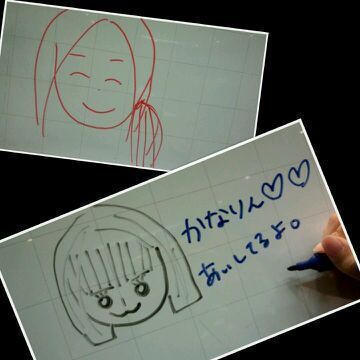 かなりん♡♡
あいしてるよ。